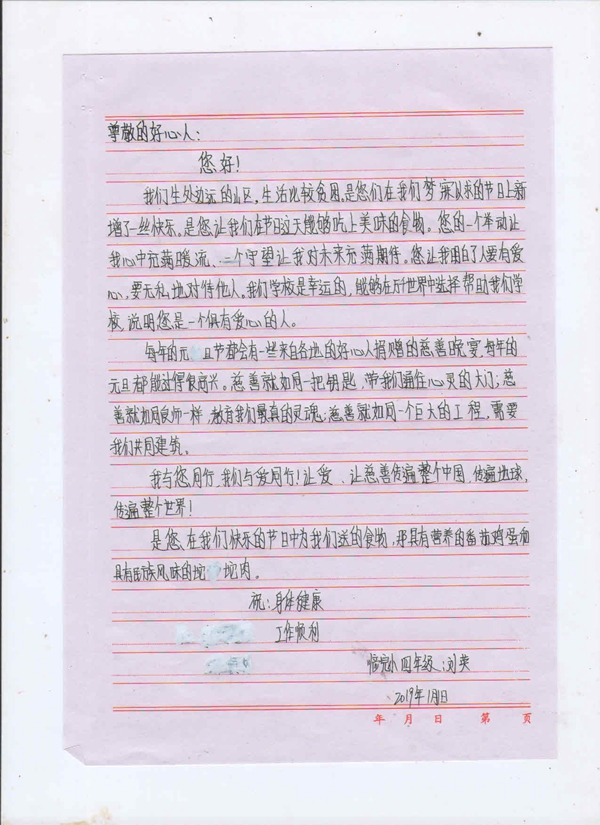 尊敬的好心人：
您好！
我们生处边远的山区，生活比较贫困，是您们在我们梦寐以求的节日上新
增了一丝快乐。是您让我们在节日这天能够吃上美味的食物。您的一个举动让
我心中充满暖流、一个守望让我对未来充满期待。您让我明白了人要有爱
心，要无私地对待他人。我们学校是幸运的，能够在世界中选择帮助我们学
校，说明您是一个俱有爱心的人。
每年的元旦节都会有一些来自各地的好心人捐赠的慈善晚宴，每年的
元旦都能过得很高兴。慈善就如同一把钥匙，带我们通往心灵的大门；慈
善就如同良师一样，教育我们最真的灵魂；慈善就如同一个巨大的工程，需要
我们共同建筑。
我与您同行，我们与爱同行！让爱、让慈善传遍整个中国，传遍地球，
传遍整个世界！
是您、在我们快乐的节日中为我们送的食物，那具有营养的番茄鸡蛋汤
具有民族风味的坨坨肉。
祝：身体健康
工作顺利
小四年级：刘英
2019年1月1日
年 月 日 第 页